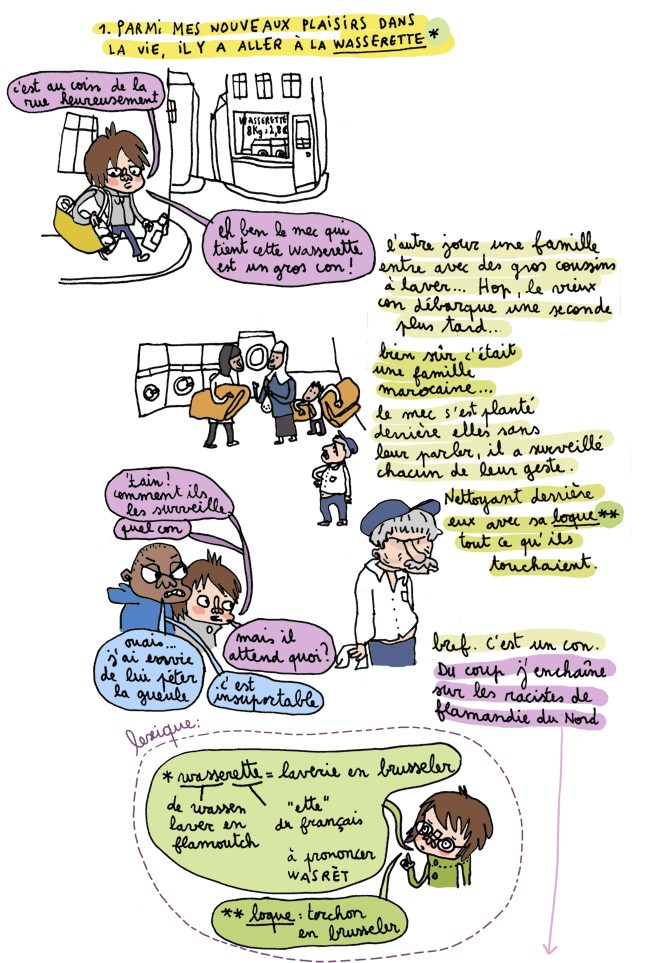 1. PARMI MES NOUVEAUX PLAISIRS DANS
LA VIE, IL Y A ALLER À LA WASSERETTE*
c'est au coin de la
rue heureusement
WASSERETTE
8Kg : 2,8€
eh ben le mec qui
tient cette Wasserette
est un gros con !
l'autre jour une famille
entre avec des gros coussins
à laver... Hop, le vieux
con débarque une seconde
plus tard...
bien sûr c'était
une famille
marocaine...
le mec s'est planté
derrière elles sans
leur parler, il a surveillé
chacun de leur geste.
Nettoyant derrière
eux avec sa loque**
tout ce qu'ils
touchaient.
'tain !
comment ils
les surveille
quel con
mais il
attend quoi ?
ouais...
j'ai envie
de lui péter
la gueule
c'est
insuportable
bref. C'est un con.
Du coup j'enchaîne
sur les racistes de
flamandie du Nord
lexique :
* wasserette = laverie en brusseler
de wassen
laver en
flamoutch
"ette"
du français
à prononcer
WASRÈT
** loque : torchon
en brusseler